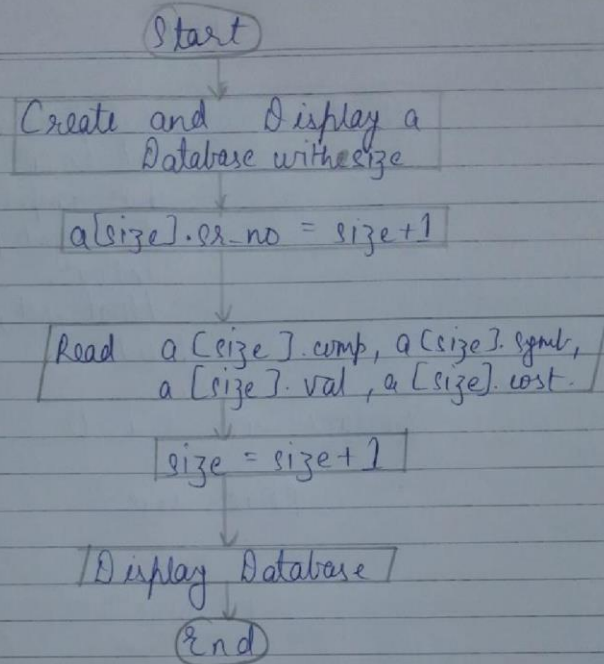 Start
Create and Display a
Database with size
a[size].sr_no = size+1
Read a[size].comp, a[size].symb,
a[size].val, a[size].cost.
size = size+1
Display Database
End